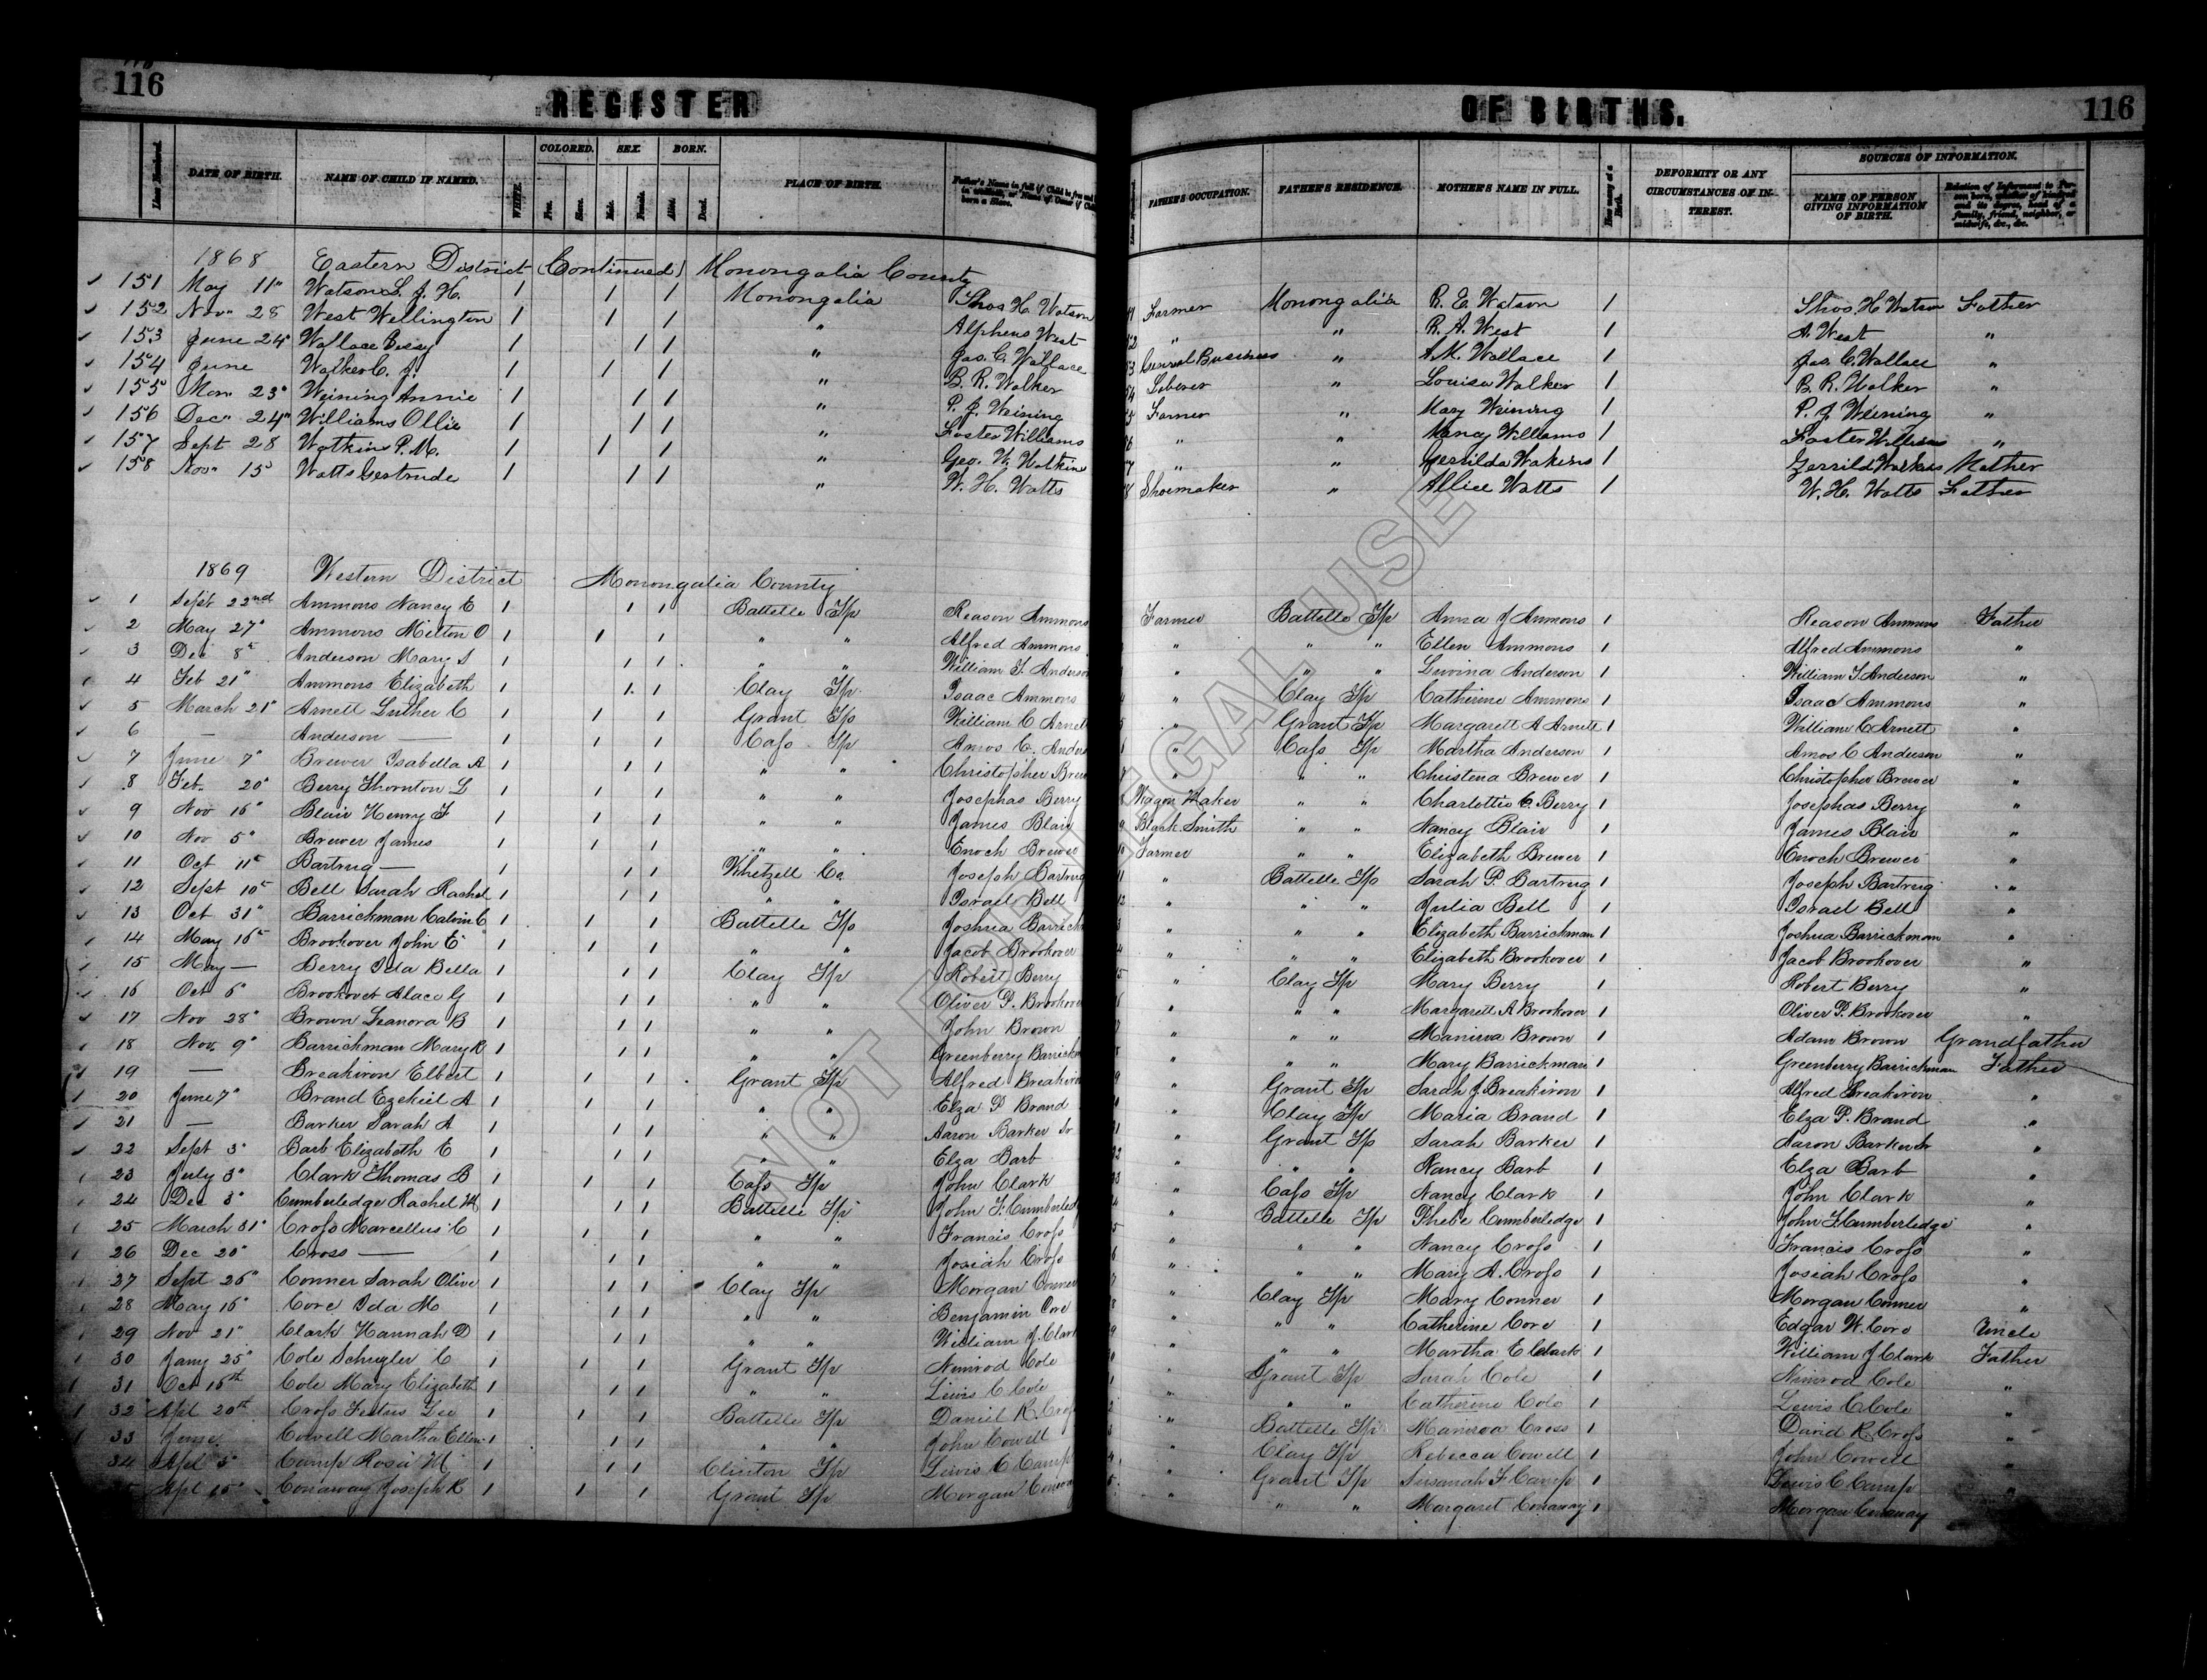 116 REGISTER OF BIRTHS. 116
Lines Numbered. DATE OF BIRTH. NAME OF CHILD IF NAMED. WHITE. COLORED. Free. Slave. SEX. Male. Female. BORN. Alive. Dead. PLACE OF BIRTH. Father's Name in full if Child be free and born in wedlock, or Name of Owner if Child born a Slave. Lines Numbered. FATHER'S OCCUPATION. FATHER'S RESIDENCE. MOTHER'S NAME IN FULL. How many at a Birth. DEFORMITY OR ANY CIRCUMSTANCES OF INTEREST. SOURCES OF INFORMATION. NAME OF PERSON GIVING INFORMATION OF BIRTH. Relation of Informant to Person born, whether of kindred and its degree, head of a family, friend, neighbor, or midwife, &c., &c.
1868 Eastern District (Continued) Monongalia County
151 May 11" Watson S. J. H. 1 1 1 Monongalia Thos H. Watson Farmer Monongalia R. E. Watson 1 Thos. H Watson Father
152 Nov" 28 West Wellington 1 1 1 " Alpheus West " " R. A. West 1 A. West "
153 June 24" Wallace 1 1 1 " Jas. C. Wallace General Business " A. M. Wallace 1 Jas. C. Wallace "
154 June Walker C. J. 1 1 1 " B. R. Walker Laborer " Louisa Walker 1 B. R. Walker "
155 Mar 23" Weining Annie 1 1 1 " P. J. Weining Farmer " Mary Weining 1 P. J Weining "
156 Dec" 24" Williams Ollie 1 1 1 " Foster Williams " " Nancy Williams 1 Foster Williams "
157 Sept 28 Watkins P. M. 1 1 1 " Geo. W. Watkins " " Gerrilda Wakins 1 Gerrild Watkins Mother
158 Nov" 15 Watts Gertrude 1 1 1 " W. H. Watts Shoemaker " Allice Watts 1 W. H. Watts Father
1869 Western District Monongalia County
1 Sept 22nd Ammons Nancy E 1 1 1 Battelle Tp Reason Ammons Farmer Battelle Tp Anna J Ammons 1 Reason Ammons Father
2 May 27" Ammons Milton O 1 1 1 " " Alfred Ammons " " " Ellen Ammons 1 Alfred Ammons "
3 Dec 8" Anderson Mary S 1 1 1 " " William T. Anderson " " " Luvina Anderson 1 William T Anderson "
4 Feb 21" Ammons Elizabeth 1 1 1 Clay Tp. Isaac Ammons " Clay Tp Catherine Ammons 1 Isaac Ammons "
5 March 21" Arnett Luther C 1 1 1 Grant Tp William C Arnett " Grant Tp Margarett A Arnett 1 William C Arnett "
6 — Anderson — 1 1 1 Cass Tp Amos C. Anderson " Cass Tp Martha Anderson 1 Amos C Anderson "
7 June 7" Brewer Isabella A 1 1 1 " " Christopher Brewer " " " Christena Brewer 1 Christopher Brewer "
8 Feb. 20" Berry Thornton L 1 1 1 " " Josephas Berry Wagon Maker " " Charlottie C. Berry 1 Josephas Berry "
9 Nov 16" Blair Henry F 1 1 1 " " James Blair Black Smith " " Nancy Blair 1 James Blair "
10 Nov 5" Brewer James 1 1 1 " " Enoch Brewer Farmer " " Elizabeth Brewer 1 Enoch Brewer "
11 Oct 11" Bartrug — 1 1 1 Whetzell Co. Joseph Bartrug " Battelle Tp Sarah P. Bartrug 1 Joseph Bartrug "
12 Sept 10" Bell Sarah Rachel 1 1 1 " " Israel Bell " " " Julia Bell 1 Israel Bell "
13 Oct 31" Barrickman Calvin C 1 1 1 Battelle Tp Joshua Barrick " " " Elizabeth Barrickman 1 Joshua Barrickman "
14 May 16" Brookover John E 1 1 1 " " Jacob Brookover " " " Elizabeth Brookover 1 Jacob Brookover "
15 May — Berry Ida Bella 1 1 1 Clay Tp Robert Berry " Clay Tp Mary Berry 1 Robert Berry "
16 Oct 6" Brookover Alace G 1 1 1 " " Oliver P. Brookover " " " Margarett A Brookover 1 Oliver P. Brookover "
17 Nov 28" Brown Leanora B 1 1 1 " " John Brown " " " Manirva Brown 1 Adam Brown Grandfather
18 Nov. 9" Barrickman Mary R 1 1 1 " " Greenberry Barrickm " " " Mary Barrickman 1 Greenberry Barrickman Father
19 — Breakiron Elbert 1 1 1 Grant Tp Alfred Breakiron " Grant Tp Sarah J. Breakiron 1 Alfred Breakiron "
20 June 7" Brand Ezekiel A 1 1 1 " " Elza P Brand " Clay Tp Maria Brand 1 Elza P. Brand "
21 — Barker Sarah A 1 1 1 " " Aaron Barker Sr " Grant Tp Sarah Barker 1 Aaron Barker Sr "
22 Sept 3" Barb Elizabeth E 1 1 1 " " Elza Barb " " " Nancy Barb 1 Elza Barb "
23 July 3" Clark Thomas B 1 1 1 Cass Tp John Clark " Cass Tp Nancy Clark 1 John Clark "
24 Dec 3" Cumberledge Rachel M 1 1 1 Battelle Tp John T. Cumberled " Battelle Tp Phebe Cumberledge 1 John T. Cumberledge "
25 March 31" Cross Marcellus C 1 1 1 " " Francis Cross " " " Nancy Cross 1 Francis Cross "
26 Dec 20" Cross — 1 1 1 " " Josiah Cross " " " Mary A. Cross 1 Josiah Cross "
27 Sept 26" Conner Sarah Olive 1 1 1 Clay Tp Morgan Conner " Clay Tp Mary Conner 1 Morgan Conner "
28 May 16" Core Ida M 1 1 1 " " Benjamin Core " " " Catherine Core 1 Edgar W. Core Uncle
29 Nov 21" Clark Hannah D 1 1 1 " " William J. Clark " " " Martha E Clark 1 William J Clark Father
30 Jany 25" Cole Schuyler C 1 1 1 Grant Tp Nimrod Cole " Grant Tp Sarah Cole 1 Nimrod Cole "
31 Oct 16th Cole Mary Elizabeth 1 1 1 " " Lewis C Cole " " " Catherine Cole 1 Lewis C Cole "
32 Apl 20th Cross Festus Lee 1 1 1 Battelle Tp Daniel R. Cross " Battelle Tp Manirva Cross 1 David R. Cross "
33 June Cowell Martha Ellen 1 1 1 " " John Cowell " Clay Tp Rebecca Cowell 1 John Cowell "
34 Apl 5" Camp Rosa M 1 1 1 Clinton Tp Lewis C Camp " Grant Tp Susanah F Camp 1 Lewis C Camp "
Apl 15" Conaway Joseph R 1 1 1 Grant Tp Morgan Conaway " " " Margaret Conaway 1 Morgan Conaway
NOT FOR LEGAL USE